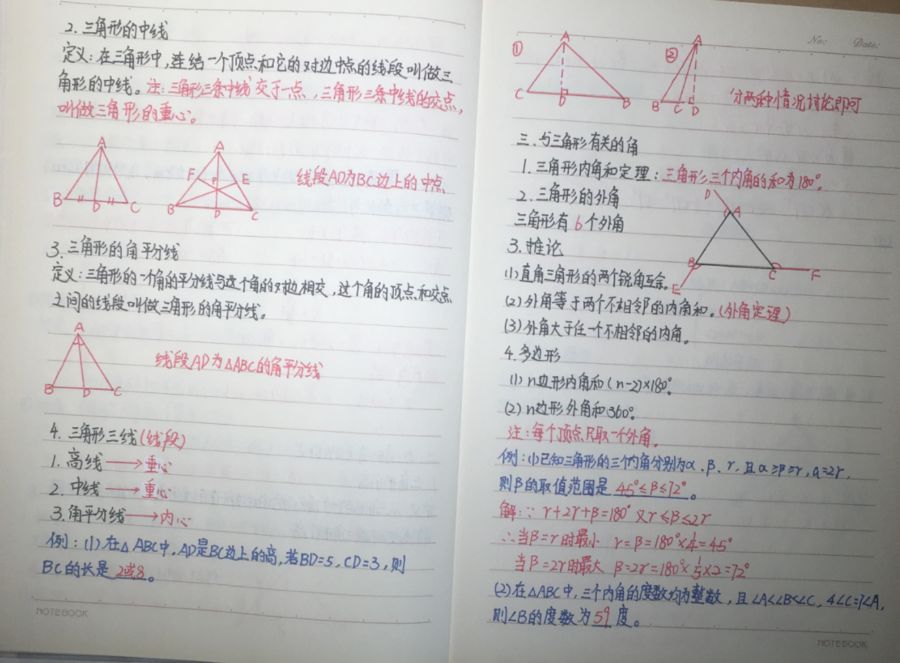 2. 三角形的中线
定义：在三角形中，连结一个顶点和它的对边中点的线段叫做三
角形的中线。注：三角形三条中线交于一点，三角形三条中线的交点，
叫做三角形的重心。
A
B D C
A
F P E
B D C
线段AD为BC边上的中点
3. 三角形的角平分线
定义：三角形的一个角的平分线与这个角的对边相交，这个角的顶点和交点
之间的线段叫做三角形的角平分线。
A
B D C
线段AD为△ABC的角平分线
4. 三角形三线(线段)
1. 高线→重心
2. 中线→重心
3. 角平分线→内心
例：(1) 在△ABC中，AD是BC边上的高，若BD=5，CD=3，则
BC的长是2或8。
NOTEBOOK
No: Date:
① A
C D B
② A
B C D
分两种情况讨论即可
三、与三角形有关的角
1. 三角形内角和定理：三角形三个内角的和为180°。
2. 三角形的外角
三角形有6个外角
D
A
B C F
E
3. 推论
(1) 直角三角形的两个锐角互余。
(2) 外角等于两个不相邻的内角和。(外角定理)
(3) 外角大于任一个不相邻的内角。
4. 多边形
(1) n边形内角和(n-2)×180°。
(2) n边形外角和360°。
注：每个顶点只取一个外角。
例：(1)已知三角形的三个内角分别为α、β、γ，且α≥β≥γ，α=2γ，
则β的取值范围是 45°≤β≤72°。
解：∵ γ+2γ+β=180° 又γ≤β≤2γ
∴当β=γ时最小 γ=β=180°×¼=45°
当β=2γ时最大 β=2γ=180°×⅕×2=72°
(2) 在△ABC中，三个内角的度数均为整数，且∠A<∠B<∠C，4∠C=7∠A，
则∠B的度数为59度。
NOTEBOOK